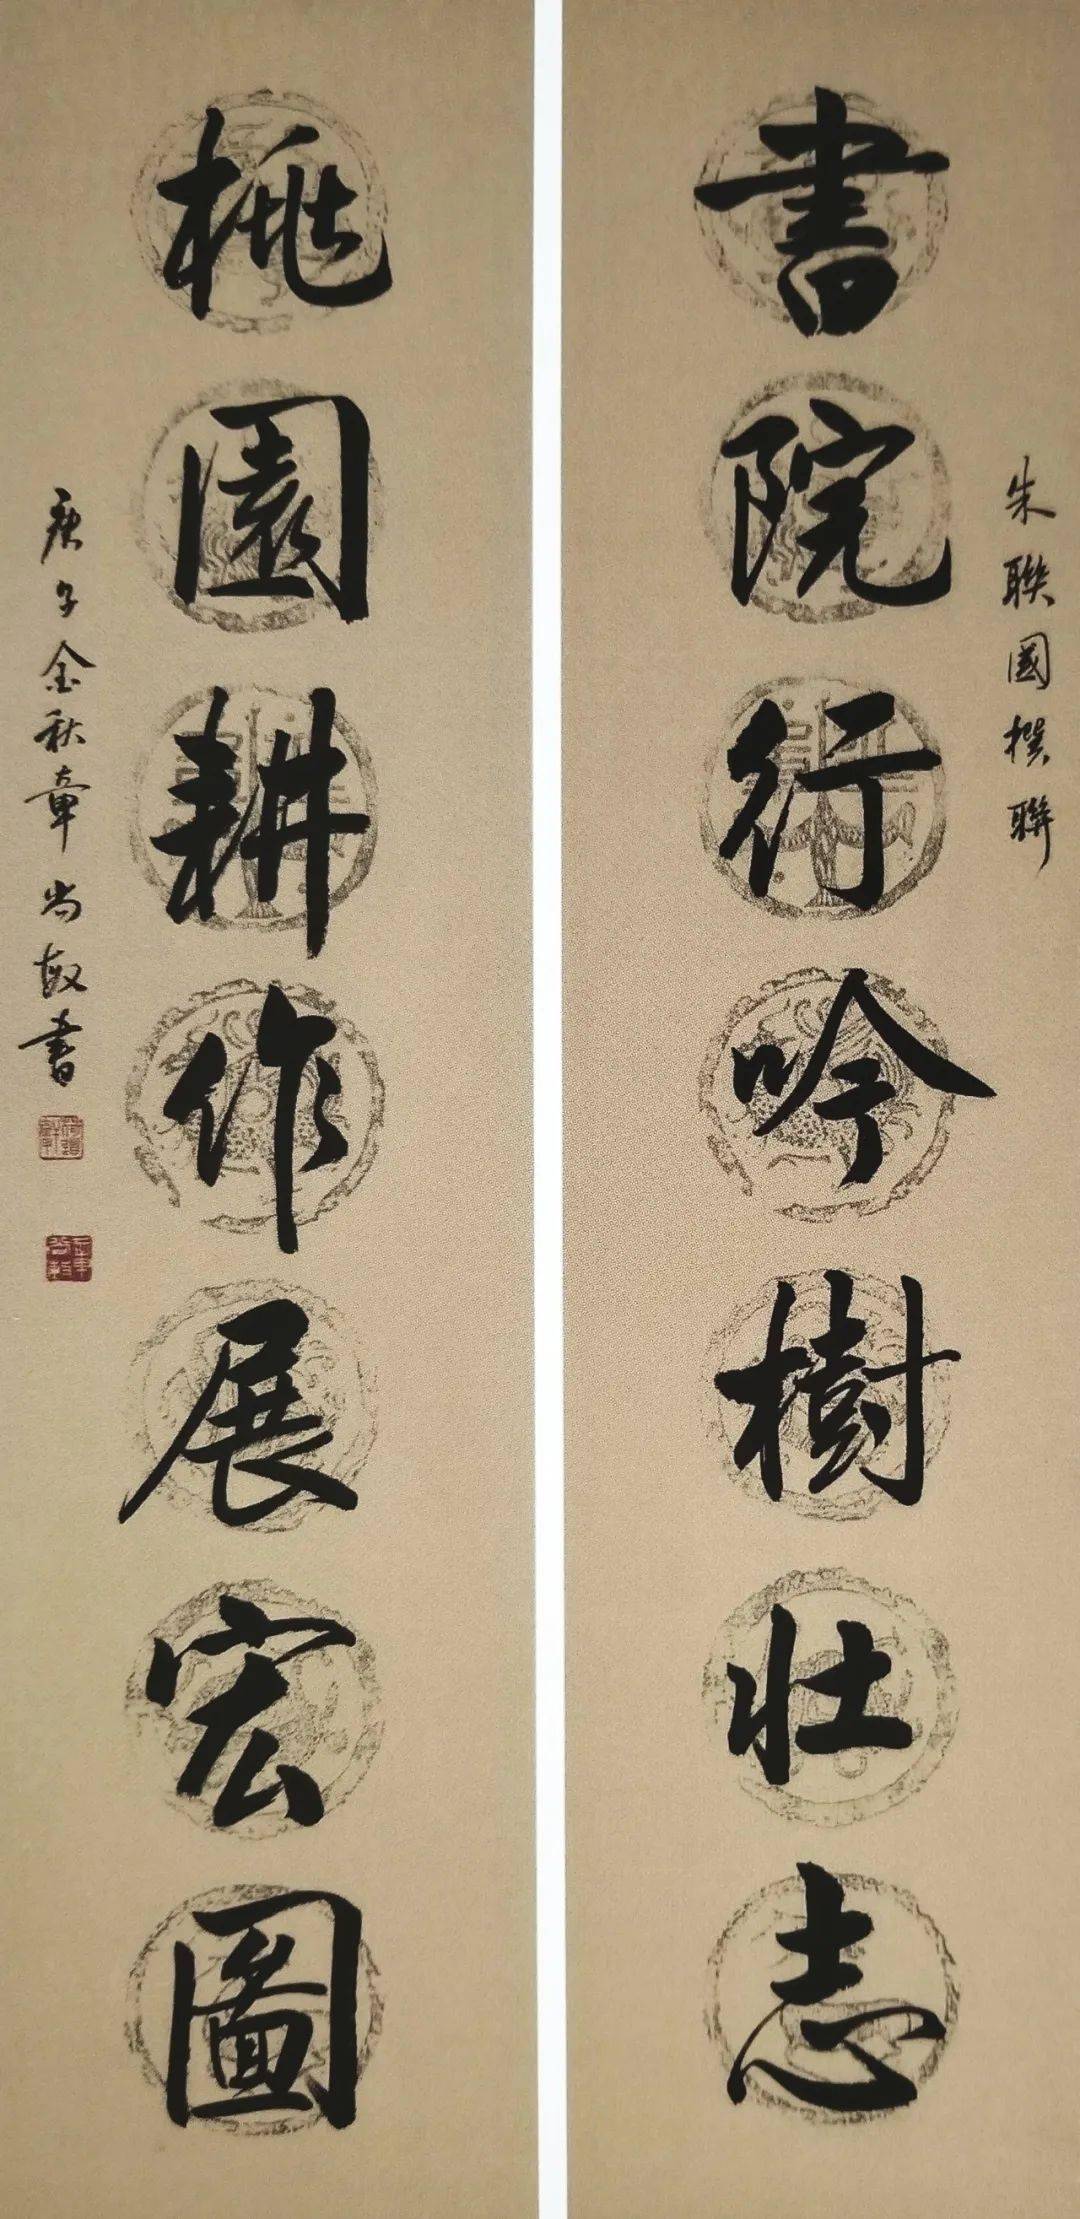 朱聯國撰聯
書院行吟樹壯志
桃園耕作展宏圖
庚子金秋章尚敏書